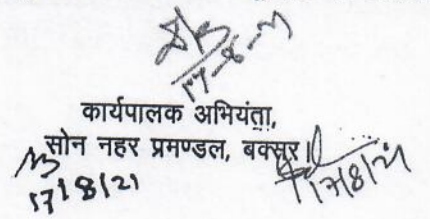 17-8-21
कार्यपालक अभियंता,
सोन नहर प्रमण्डल, बक्सर।
17/8/21 17/8/21